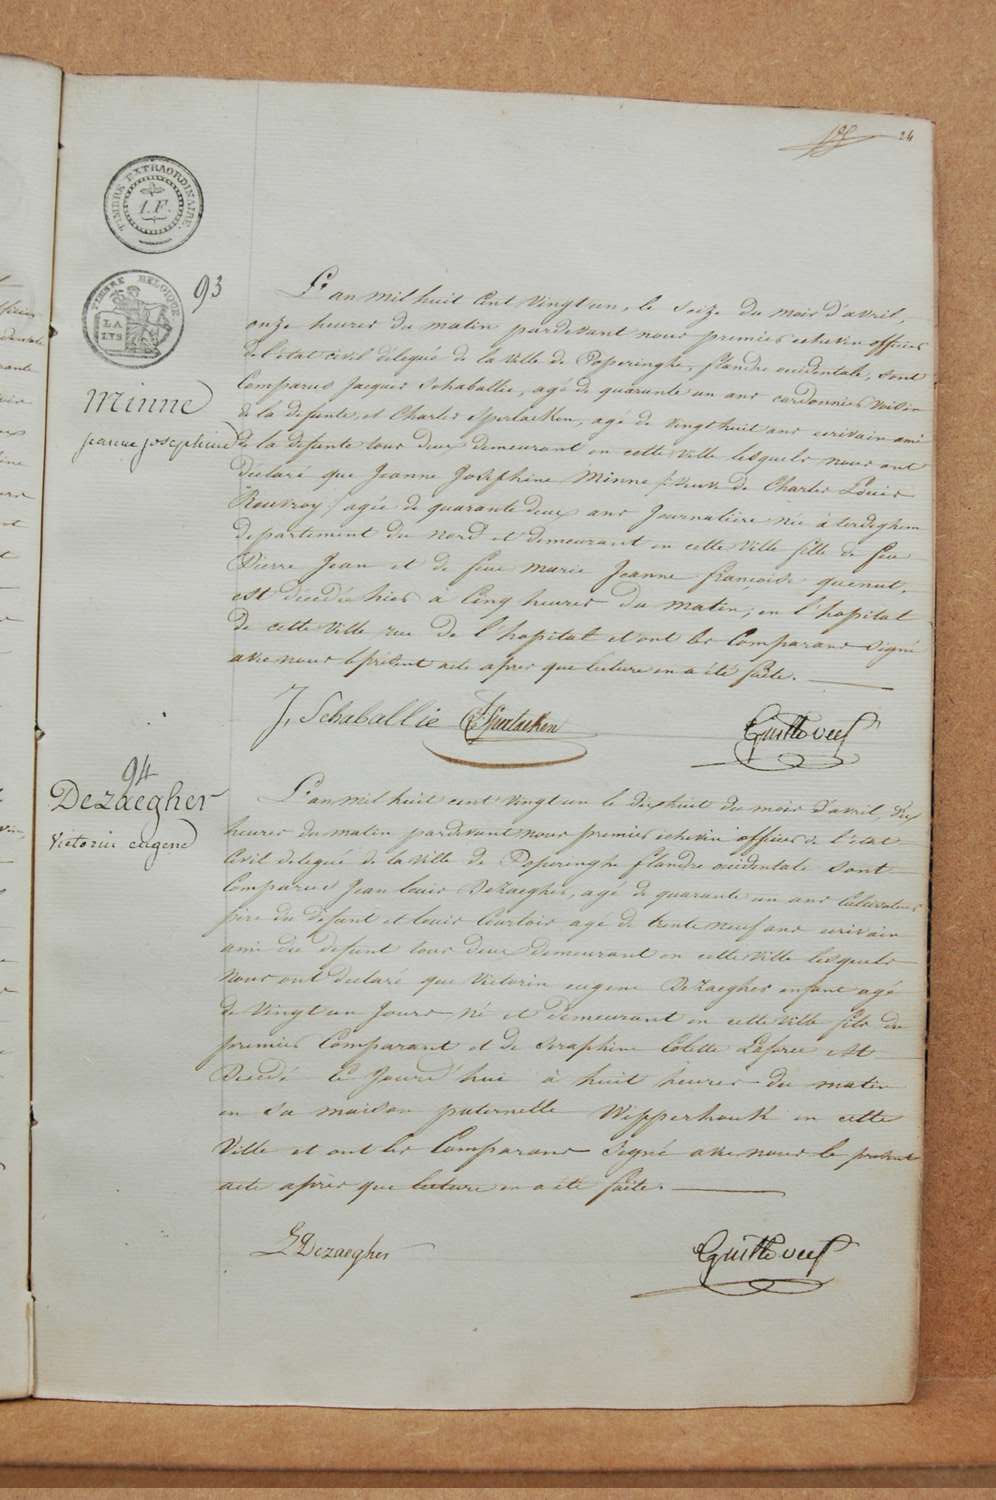 24
TIMBRE EXTRAORDINAIRE.
1.F.
TIMBRE BELGIQUE
LA
LYS
93
Minne
jeanne josephine
L'an mil huit Cent Vingt un, le Seize du mois d'avril,
onze heures du matin pardevant nous premier echevin officier
de l'état civil délegué de la Ville de Poperinghe, flandre occidentale, sont
Comparus Jacques Schaballie, agé de quarante un ans cordonnier Voisin
de la defunte et Charles Sperlaeken, agé de Vingt huit ans ecrivain ami
de la defunte tous deux demeurant en cette Ville lesquels nous ont
declaré que Jeanne Josephine Minne (Veuve de Charles Louis
Rouvroy) agée de quarante deux ans Journalière née à terdeghem
departement du Nord et demeurant en cette Ville fille de feu
Pierre Jean et de feue Marie Jeanne françoise quenut,
est décédée hier à Cinq heures du Matin, en l'hopital
de cette Ville rue de l'hopital et ont les Comparans signé
avec nous le présent acte apres que lecture en a été faite.
J, Schaballie Sperlaeken
94
Dezaegher
Victorin eugene
L'an mil huit cent Vingt un le dix huit du mois d'avril, dix
heures du matin pardevant Nous premier echevin officier de l'état
Civil delegué de la Ville de Poperinghe flandre occidentale sont
Comparus Jean Louis DeZaegher, agé de quarante un ans Cultivateur
père du defunt et Louis Courtois agé de trente neuf ans ecrivain
ami du defunt tous deux demeurant en cette Ville lesquels
Nous ont declaré que Victorin eugene DeZaegher enfant agé
de Vingt un Jours né et demeurant en cette Ville fils du
premier Comparant et de Seraphine Colette Laforce est
Decedé Ce Jourd'hui à huit heures du matin
en sa maison paternelle Wipperhouk en cette
Ville et ont les Comparans Signé avec nous le présent
acte après que lecture en a été faite.
Dezaegher